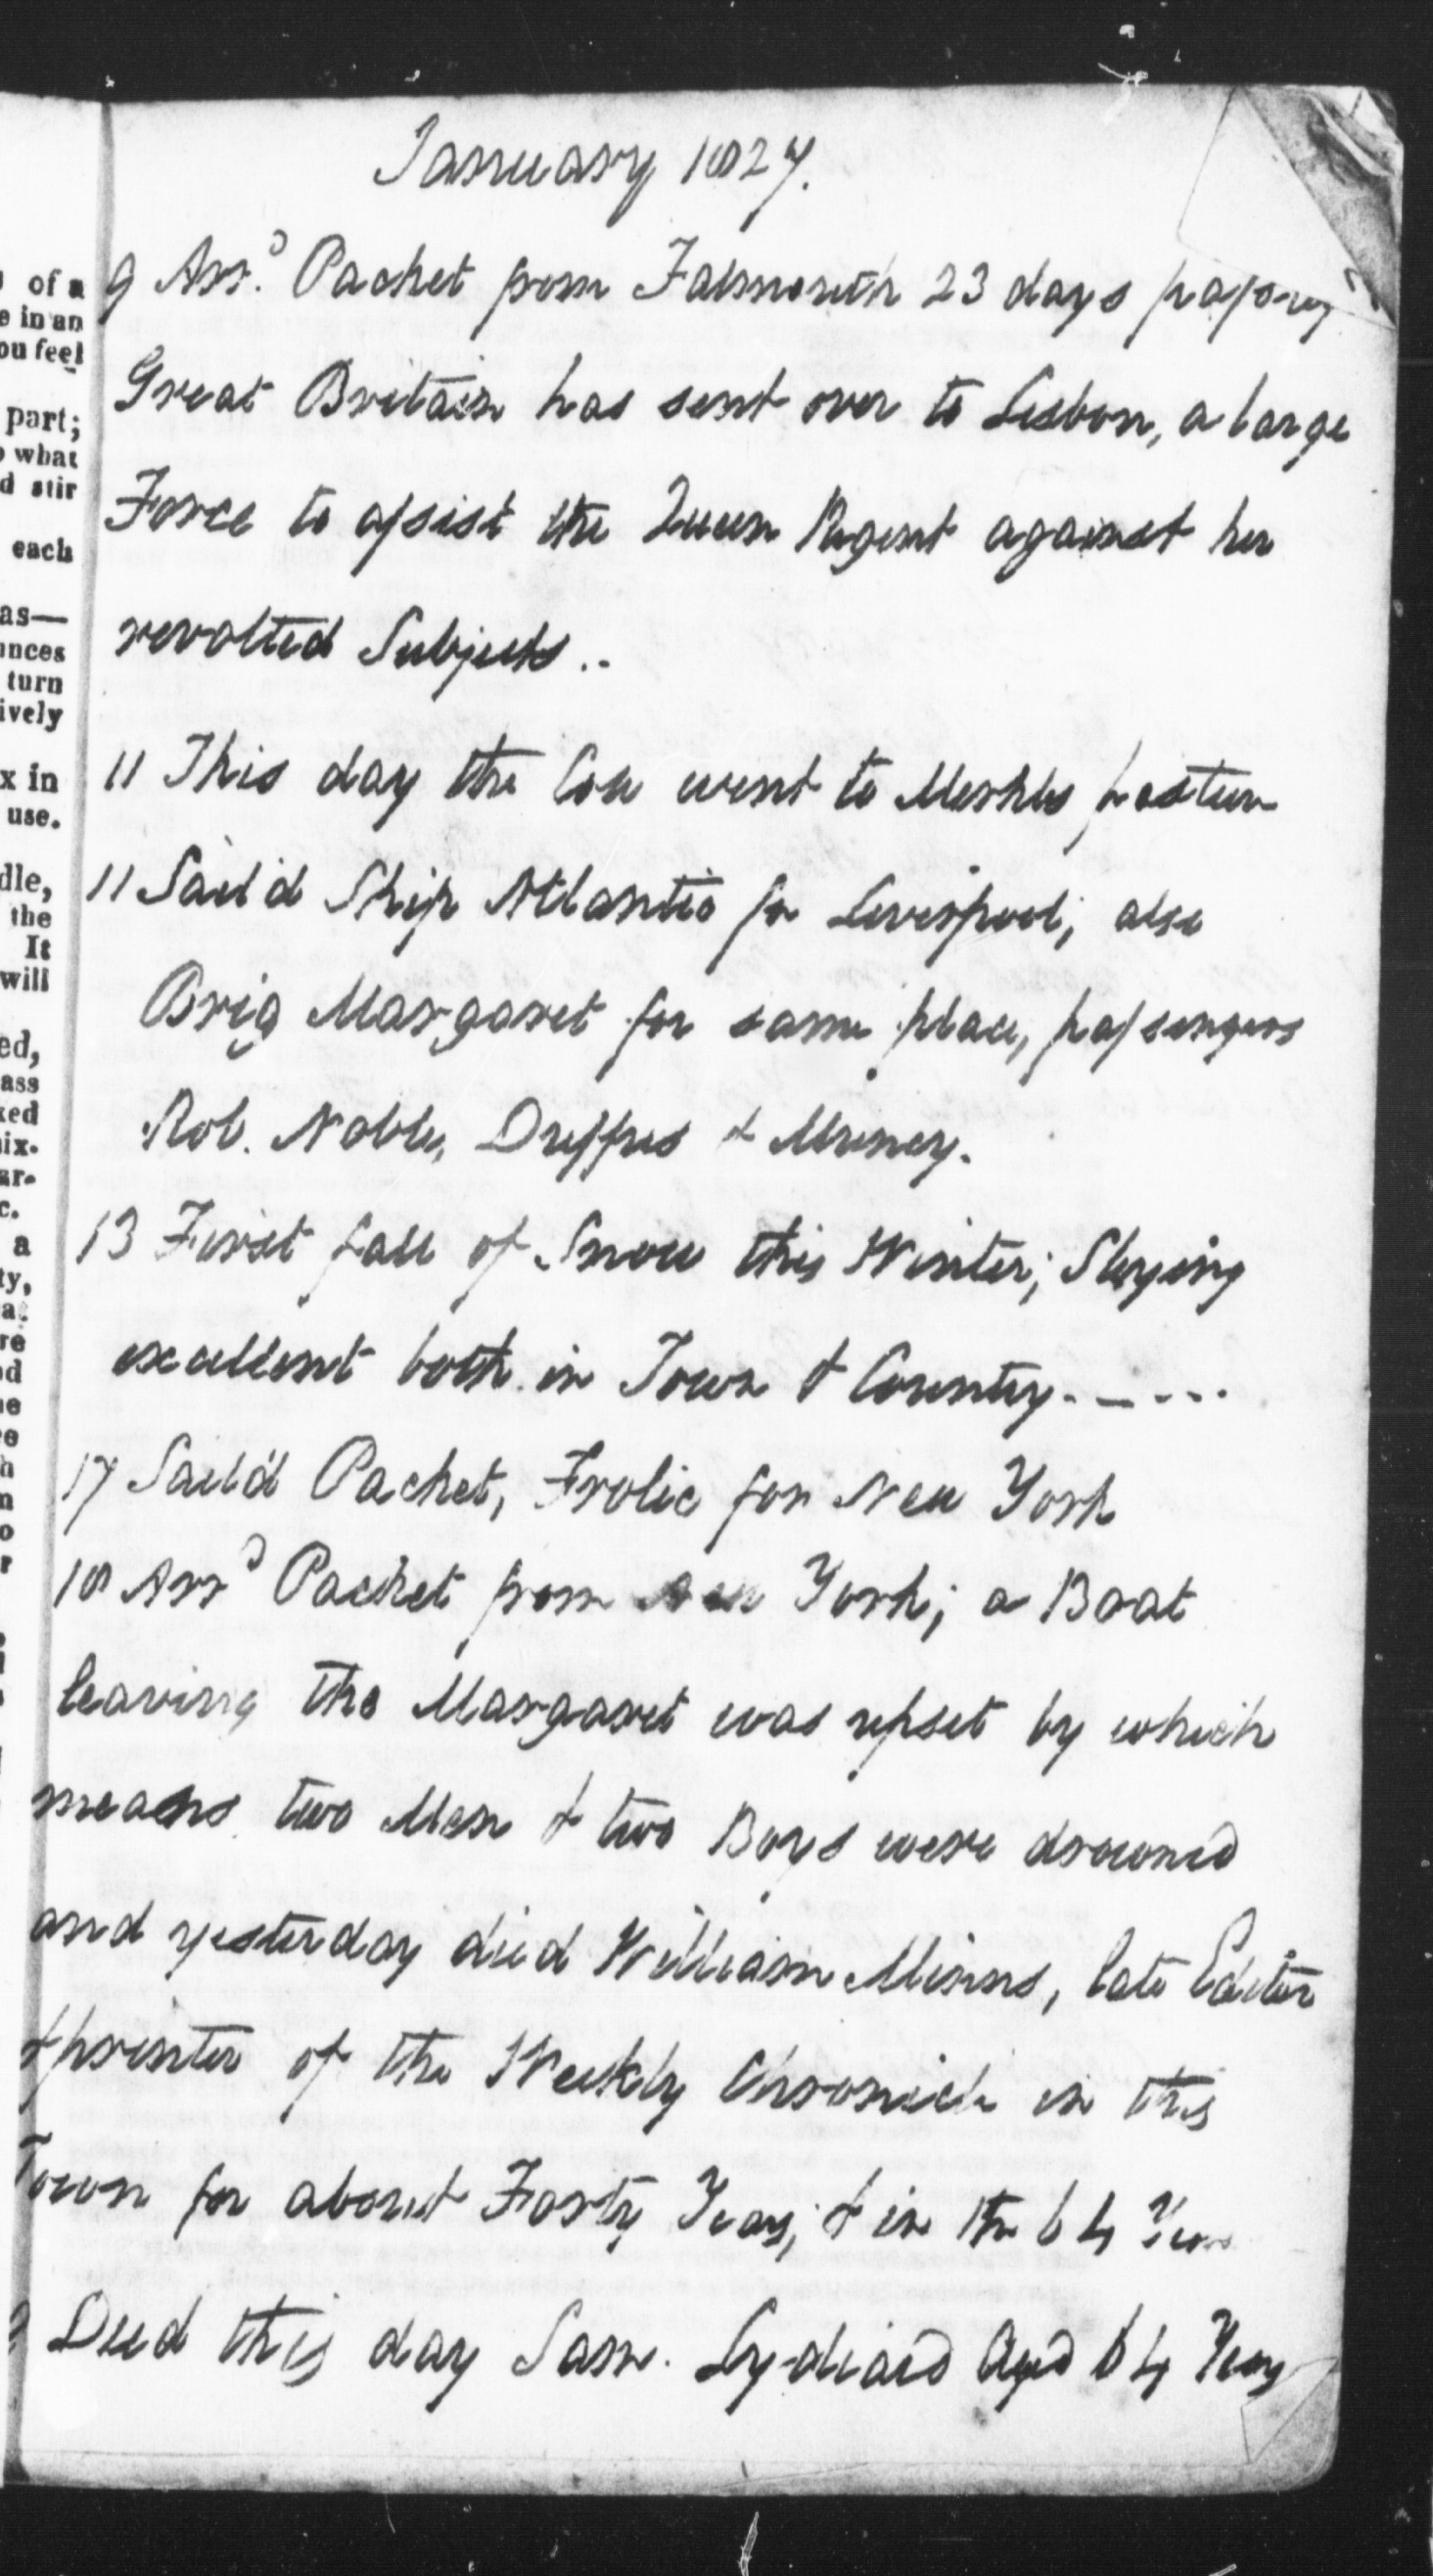 January 1827.
9 Arr.d Packet from Falmouth 23 days passage
Great Britain has sent over to Lisbon, a large
Force to assist the Queen Regent against her
revolted Subjects..
11 This day the Cow went to pasture
11 Sail'd Ship Atlantic for Liverpool; also
Brig Margaret for same place, passengers
Rob. Noble, Duffus & Murrey.
13 First fall of Snow this Winter; Sleying
excellent both in Town & Country - - - - -
17 Sail'd Packet, Frolic for New York
18 Arrd Packet from New York; a Boat
leaving the Margaret was upset by which
means two Men & two Boys were drowned
and yesterday died William Minns, late Editor
& printer of the Weekly Chronicle in this
Town for about Forty Years, & in the 64 Year
Died this day Sam. Lydiard Aged 64 Years
of a
e in an
ou feel
part;
what
d stir
each
as—
nces
turn
ively
x in
use.
dle,
the
It
will
ed,
ass
ked
ix-
ar-
c.
a
ty,
a
re
od
ne